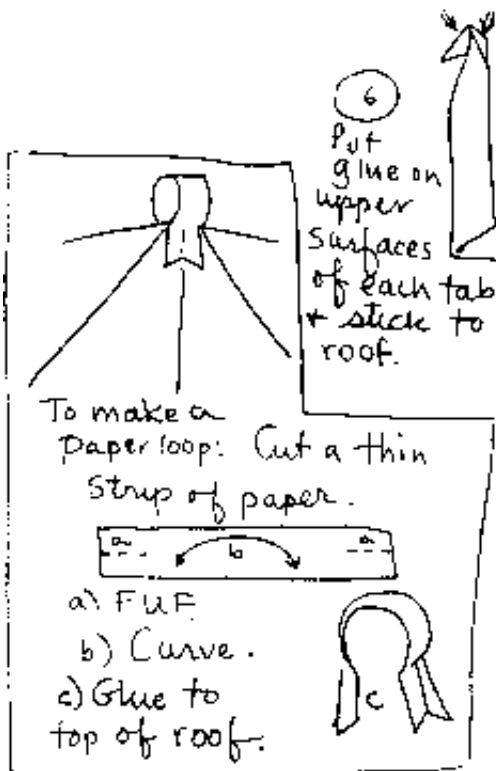 6
Put
glue on
upper
surfaces
of each tab
+ stick to
roof.
To make a
paper loop: Cut a thin
strip of paper.
a b a
a) FUF
b) Curve.
c) Glue to
top of roof.
c